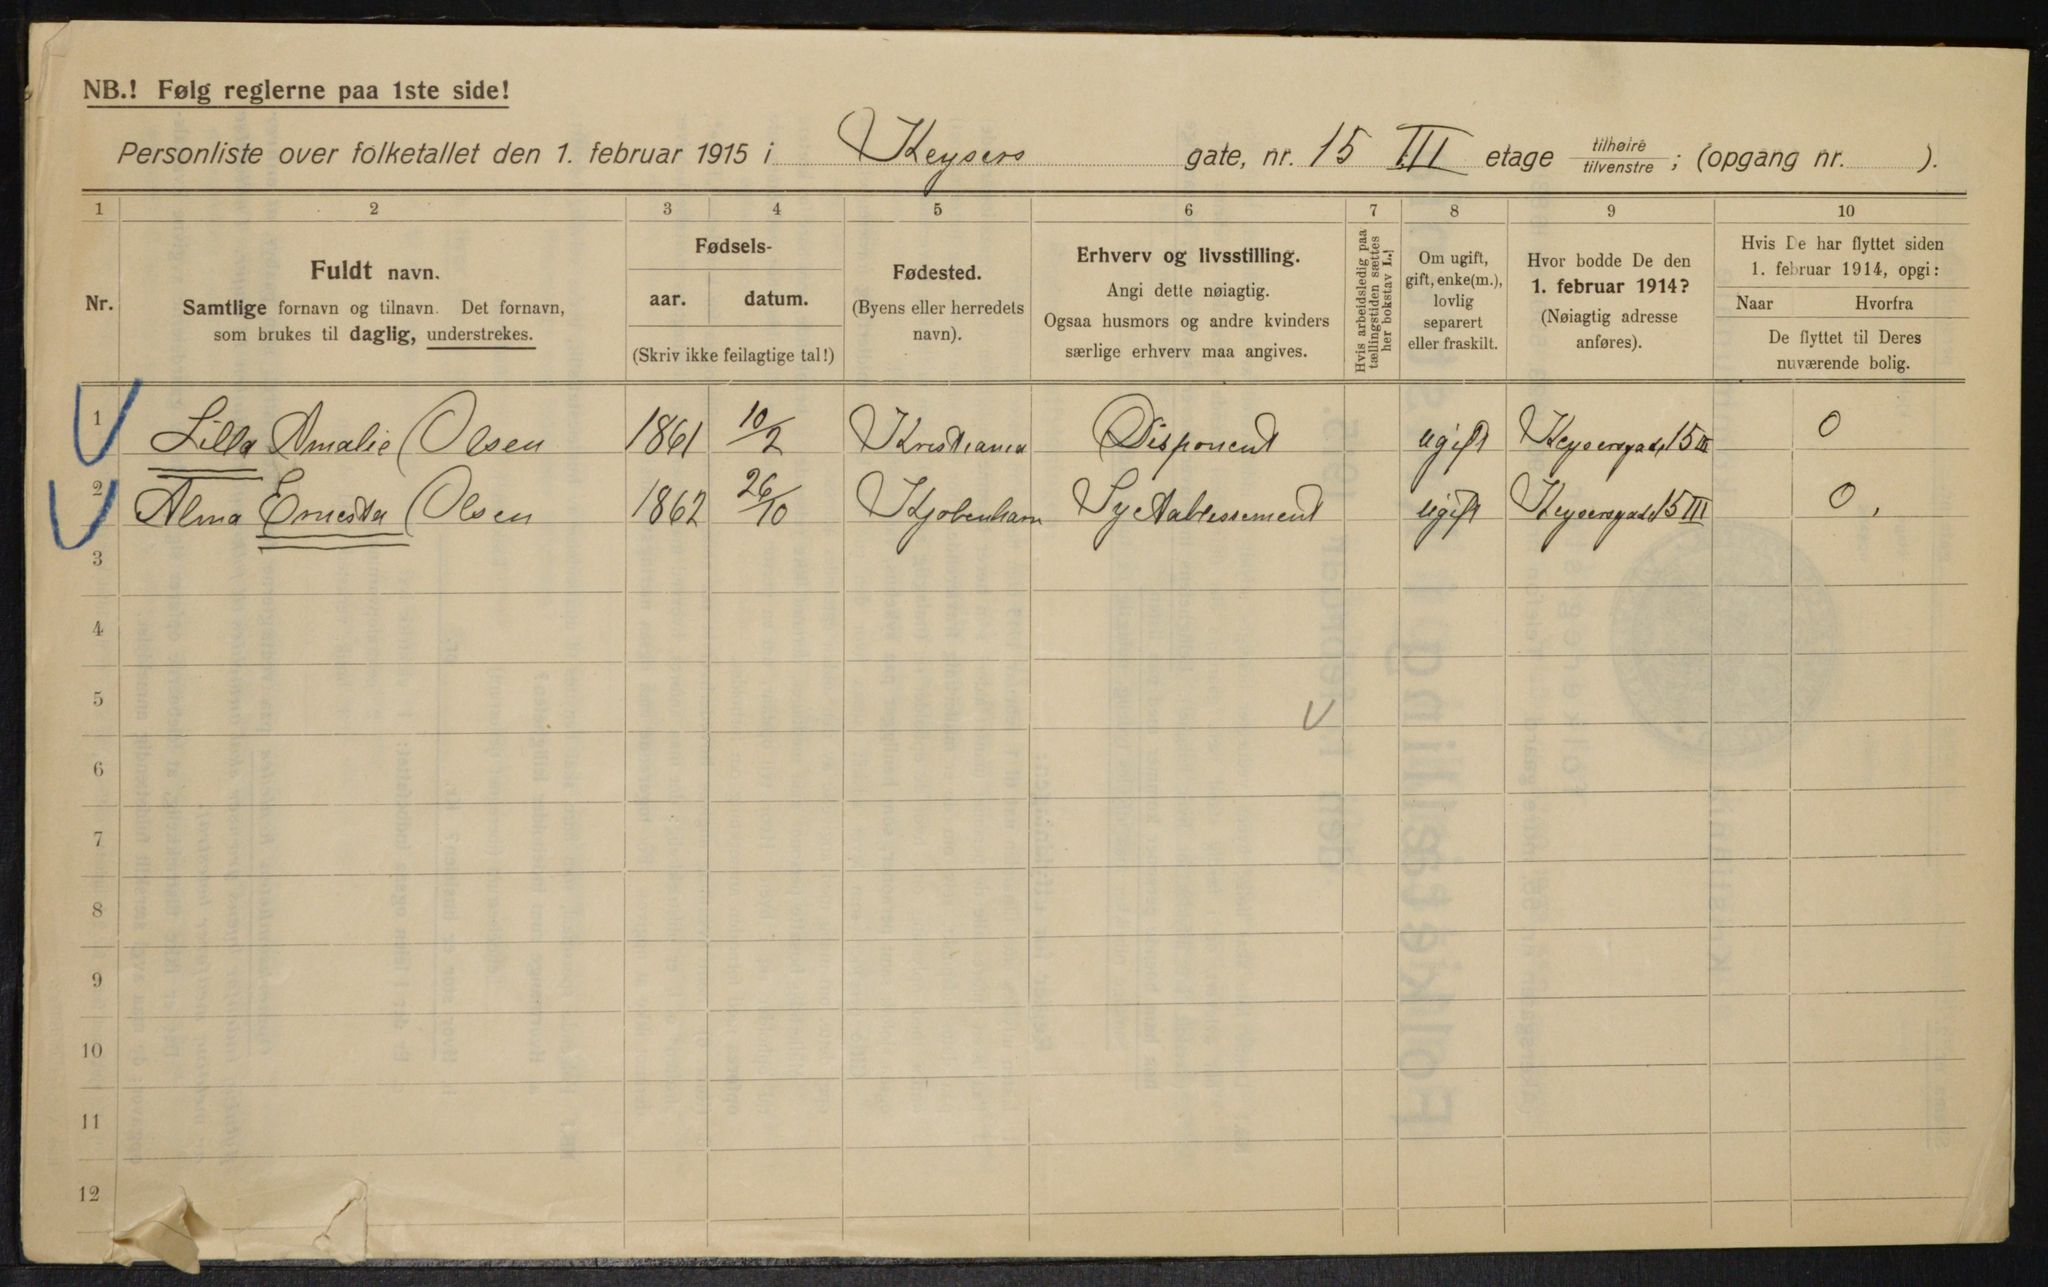 NB.! Følg reglerne paa 1ste side!
Personliste over folketallet den 1. februar 1915 i Keysers gate, nr. 15 III etage tilhøire tilvenstre ; (opgang nr. ).
1 2 3 4 5 6 7 8 9 10
Nr.
Fuldt navn.
Samtlige fornavn og tilnavn. Det fornavn,
som brukes til daglig, understrekes.
Fødsels-
aar. datum.
(Skriv ikke feilagtige tal!)
Fødested.
(Byens eller herredets
navn).
Erhverv og livsstilling.
Angi dette nøiagtig.
Ogsaa husmors og andre kvinders
særlige erhverv maa angives.
Hvis arbeidsledig paa
tællingstiden sættes
her bokstav L.!
Om ugift,
gift, enke(m.),
lovlig
separert
eller fraskilt.
Hvor bodde De den
1. februar 1914?
(Nøiagtig adresse
anføres).
Hvis De har flyttet siden
1. februar 1914, opgi:
Naar Hvorfra
De flyttet til Deres
nuværende bolig.
1 Lilla Amalie Olsen 1861 10/2 Kristiania Disponent ugift Keysersgade 15 III 0
2 Alma Ernesta Olsen 1862 26/10 Kjøbenhavn Sy Etablissement ugift Keysersgade 15 III 0
3
4
5
6
7
8
9
10
11
12